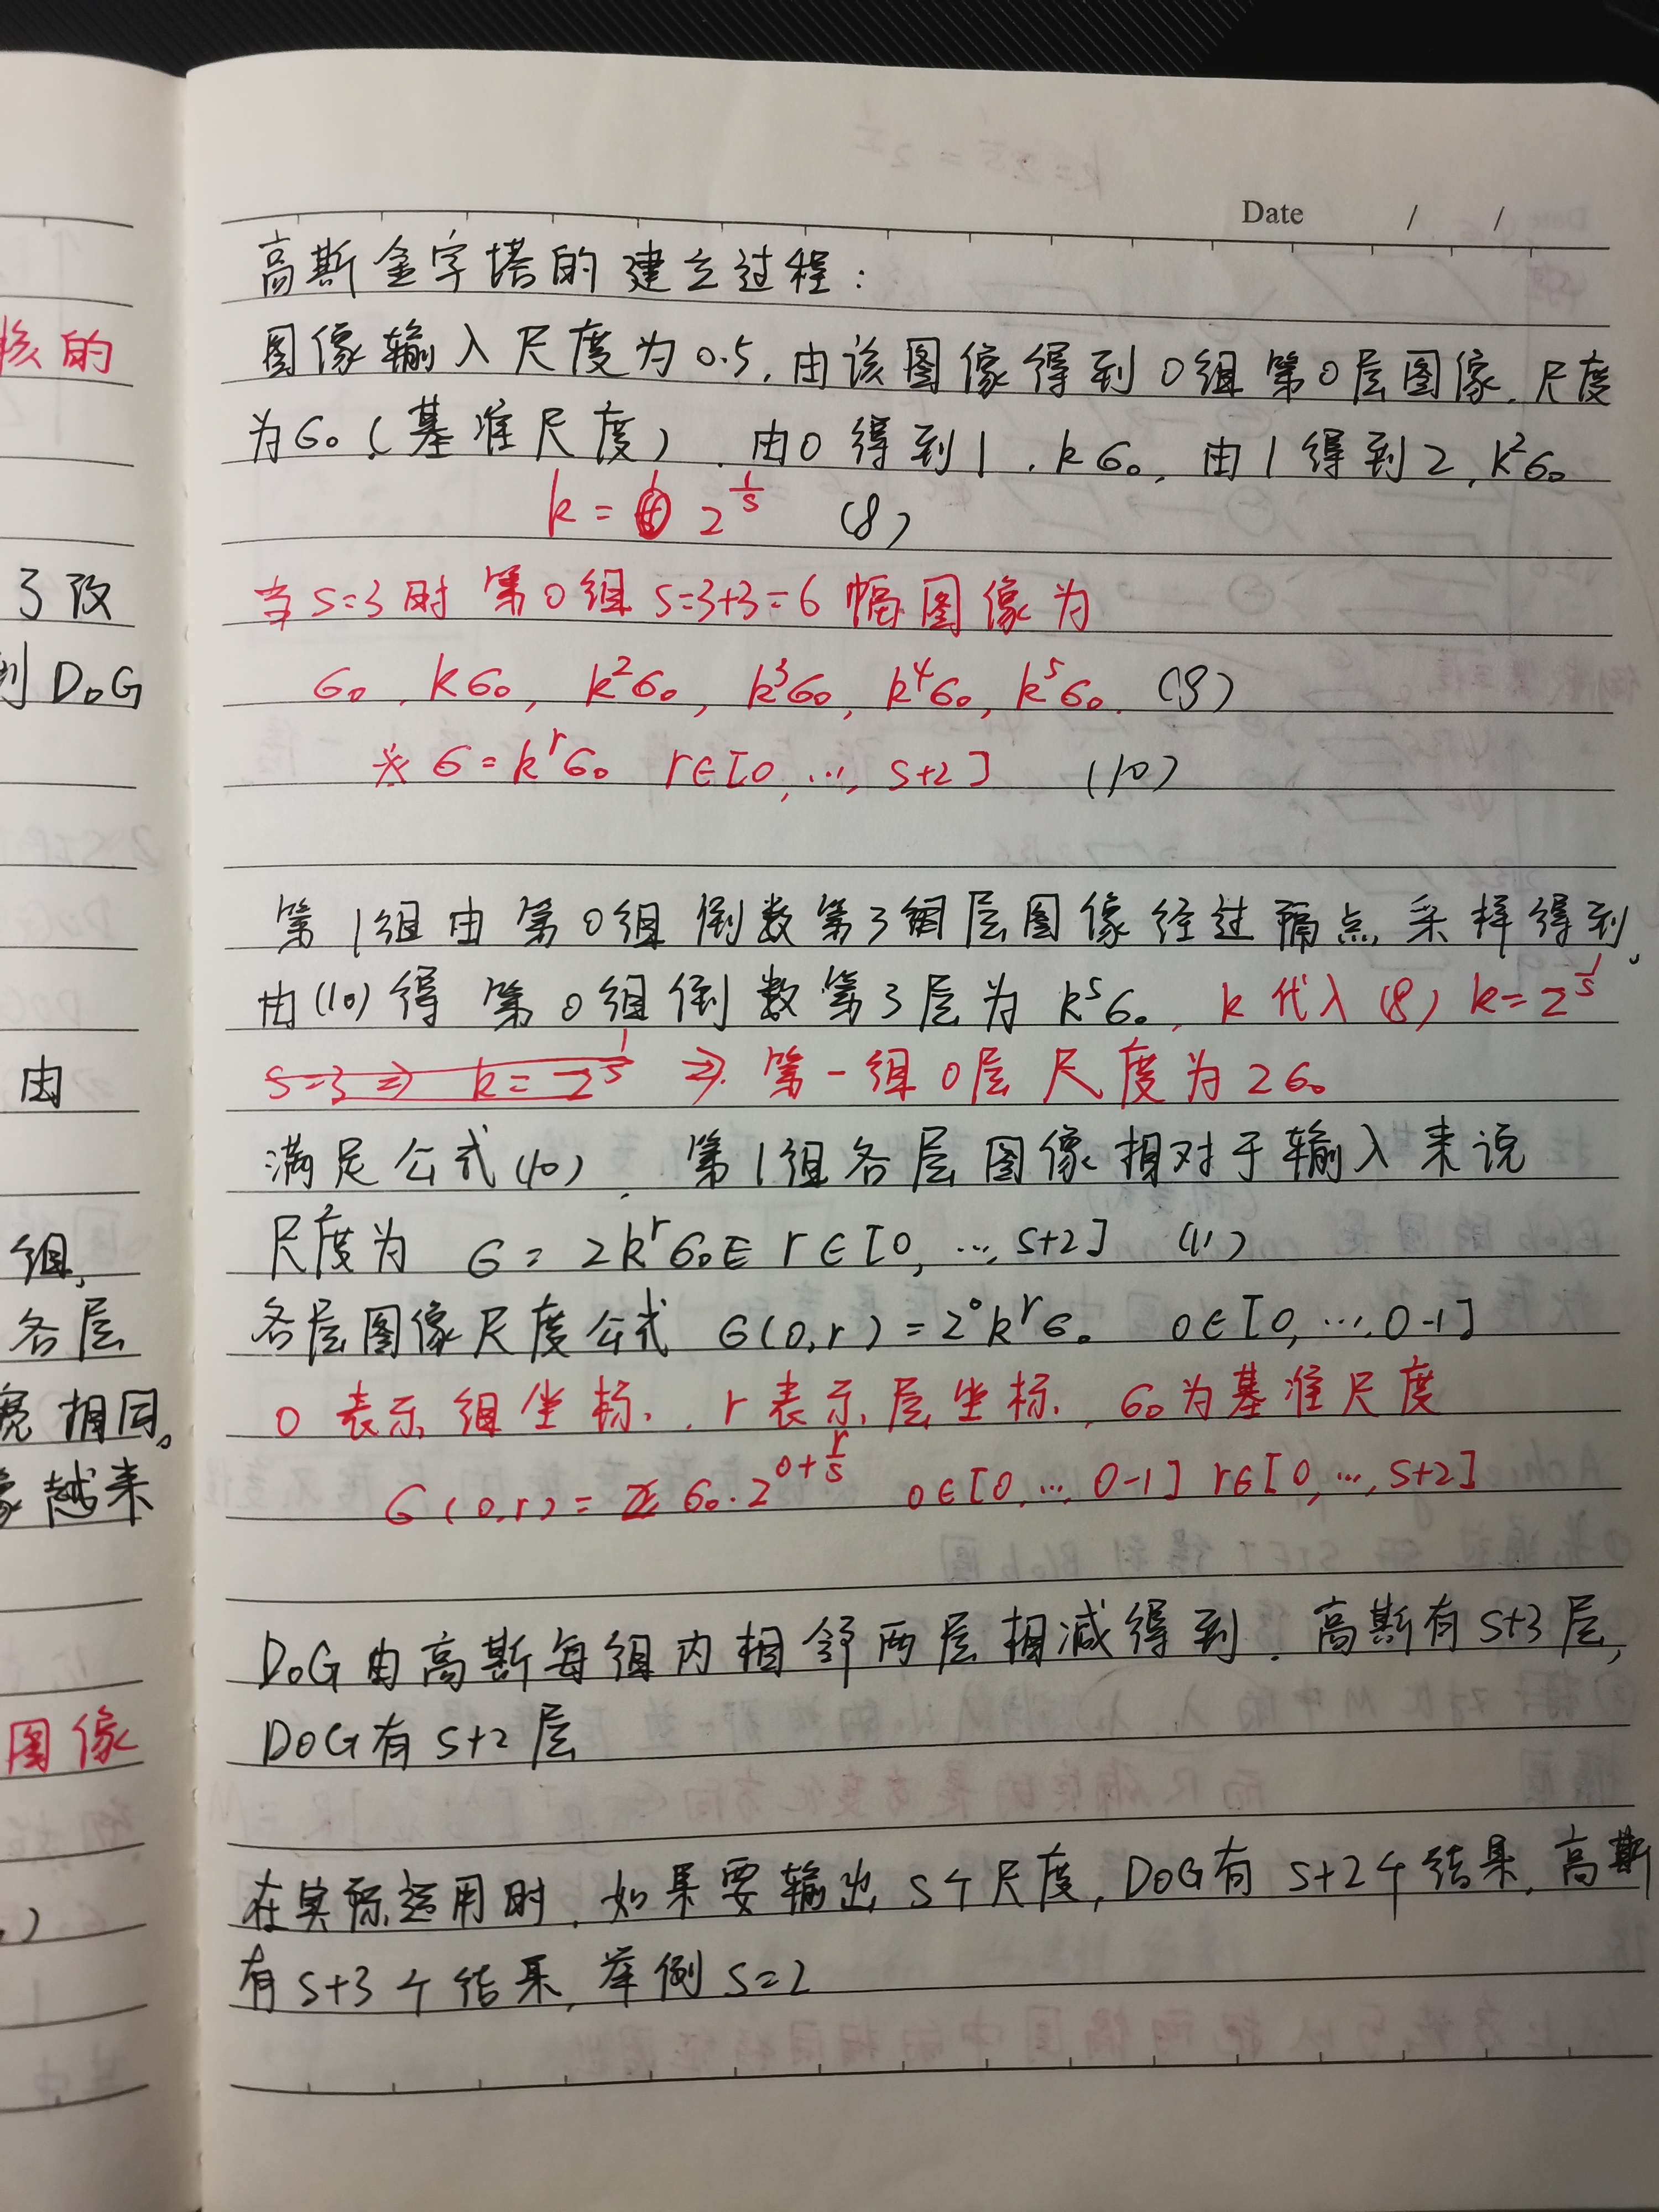 Date / /
高斯金字塔的建立过程：
图像输入尺度为0.5，由该图像得到0组第0层图像，尺度
为σ₀（基准尺度），由0得到1，kσ₀，由1得到2，k²σ₀
k = 2^{1/s} (8)
当s=3时 第0组 s=3+3=6 幅图像为
σ₀, kσ₀, k²σ₀, k³σ₀, k⁴σ₀, k⁵σ₀. (9)
※ σ = k^r σ₀ r∈[0, ..., s+2] (10)
第1组由第0组倒数第3层图像经过隔点采样得到。
由(10)得 第0组倒数第3层为 k^s σ₀, k代入(8) k=2^{1/s}
s=3 ⇒ k=2^{1/s} ⇒ 第一组0层尺度为2σ₀
满足公式(10)，第1组各层图像相对于输入来说
尺度为 σ = 2k^r σ₀ ∈ r∈[0, ..., s+2] (11)
各层图像尺度公式 σ(o,r) = 2^o k^r σ₀ o∈[0, ..., O-1]
o 表示组坐标，r表示层坐标，σ₀为基准尺度
σ(o,r) = σ₀·2^{o+r/s} o∈[0, ..., O-1] r∈[0, ..., s+2]
DoG由高斯每组内相邻两层相减得到，高斯有s+3层，
DoG有s+2层
在实际运用时，如果要输出s个尺度，DoG有s+2个结果，高斯
有s+3个结果，举例s=2
核的
了改
到DoG
由
组,
各层
宽相同。
像越来
图像